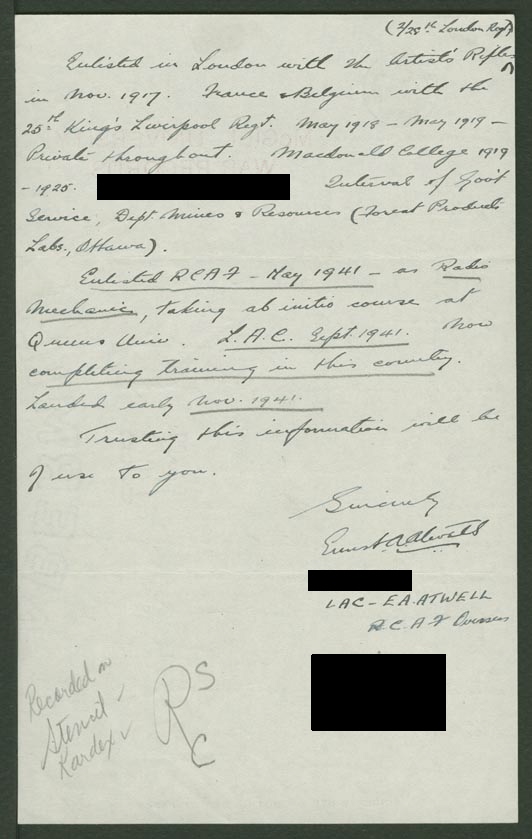 (2/28th London Regt)
Enlisted in London with the Artist's Rifles
in Nov. 1917. France & Belgium with the
25th King's Liverpool Regt. May 1918 - May 1919 -
Private throughout. Macdonald College 1919
- 1925. Interval of Gov't
Service, Dept. Mines & Resources (Forest Products
Labs., Ottawa).
Enlisted RCAF - May 1941 - as Radio
Mechanic, taking ab initio course at
Queens Univ. L.A.C. Sept. 1941. Now
completing training in this country.
Landed early Nov. 1941.
Trusting this information will be
of use to you.
Sincerely
Ernest A Atwell
LAC - E.A. ATWELL
R.C.A.F Overseas
Recorded on
Stencil ✓
Kardex ✓
RSC